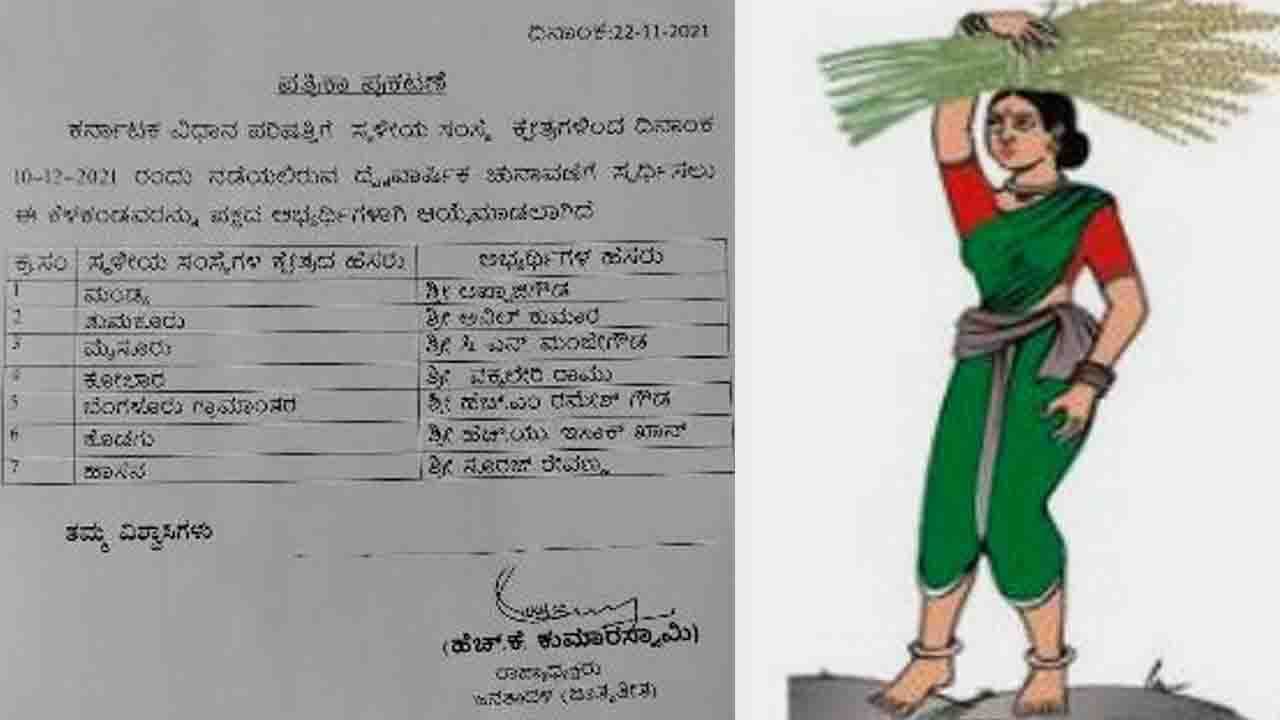 ದಿನಾಂಕ:22-11-2021
ಪತ್ರಿಕಾ ಪ್ರಕಟಣೆ
ಕರ್ನಾಟಕ ವಿಧಾನ ಪರಿಷತ್ತಿಗೆ ಸ್ಥಳೀಯ ಸಂಸ್ಥೆ ಕ್ಷೇತ್ರಗಳಿಂದ ದಿನಾಂಕ
10-12-2021 ರಂದು ನಡೆಯಲಿರುವ ದ್ವೈವಾರ್ಷಿಕ ಚುನಾವಣೆಗೆ ಸ್ಪರ್ಧಿಸಲು
ಈ ಕೆಳಕಂಡವರನ್ನು ಪಕ್ಷದ ಅಭ್ಯರ್ಥಿಗಳಾಗಿ ಆಯ್ಕೆಮಾಡಲಾಗಿದೆ
ಕ್ರ.ಸಂ ಸ್ಥಳೀಯ ಸಂಸ್ಥೆಗಳ ಕ್ಷೇತ್ರದ ಹೆಸರು ಅಭ್ಯರ್ಥಿಗಳ ಹೆಸರು
1 ಮಂಡ್ಯ ಶ್ರೀ ಅಪ್ಪಾಜಿಗೌಡ
2 ತುಮಕೂರು ಶ್ರೀ ಅನಿಲ್ ಕುಮಾರ
3 ಮೈಸೂರು ಶ್ರೀ ಸಿ ಎನ್ ಮಂಜೇಗೌಡ
4 ಕೋಲಾರ ಶ್ರೀ ವಕ್ಕಲೇರಿ ರಾಮು
5 ಬೆಂಗಳೂರು ಗ್ರಾಮಾಂತರ ಶ್ರೀ ಹೆಚ್.ಎಂ ರಮೇಶ್ ಗೌಡ
6 ಕೊಡಗು ಶ್ರೀ ಹೆಚ್.ಯು ಇಸಾಕ್ ಖಾನ್
7 ಹಾಸನ ಶ್ರೀ ಸೂರಜ್ ರೇವಣ್ಣ
ತಮ್ಮ ವಿಶ್ವಾಸಿಗಳು
(ಹೆಚ್.ಕೆ. ಕುಮಾರಸ್ವಾಮಿ)
ರಾಜ್ಯಾಧ್ಯಕ್ಷರು
ಜನತಾದಳ (ಜಾತ್ಯತೀತ)